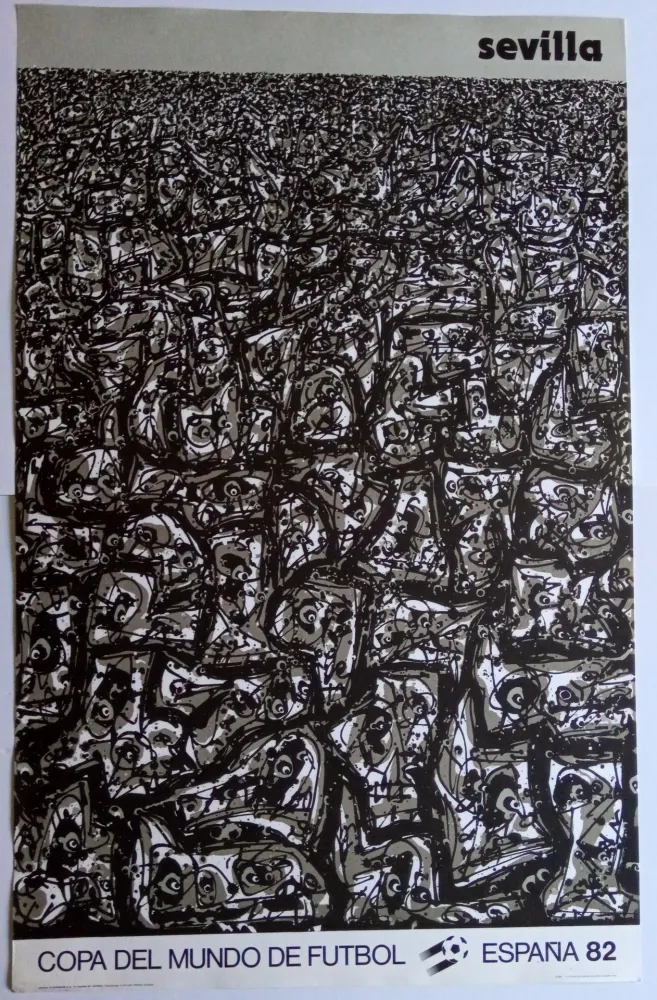 sevilla
COPA DEL MUNDO DE FUTBOL ESPAÑA 82